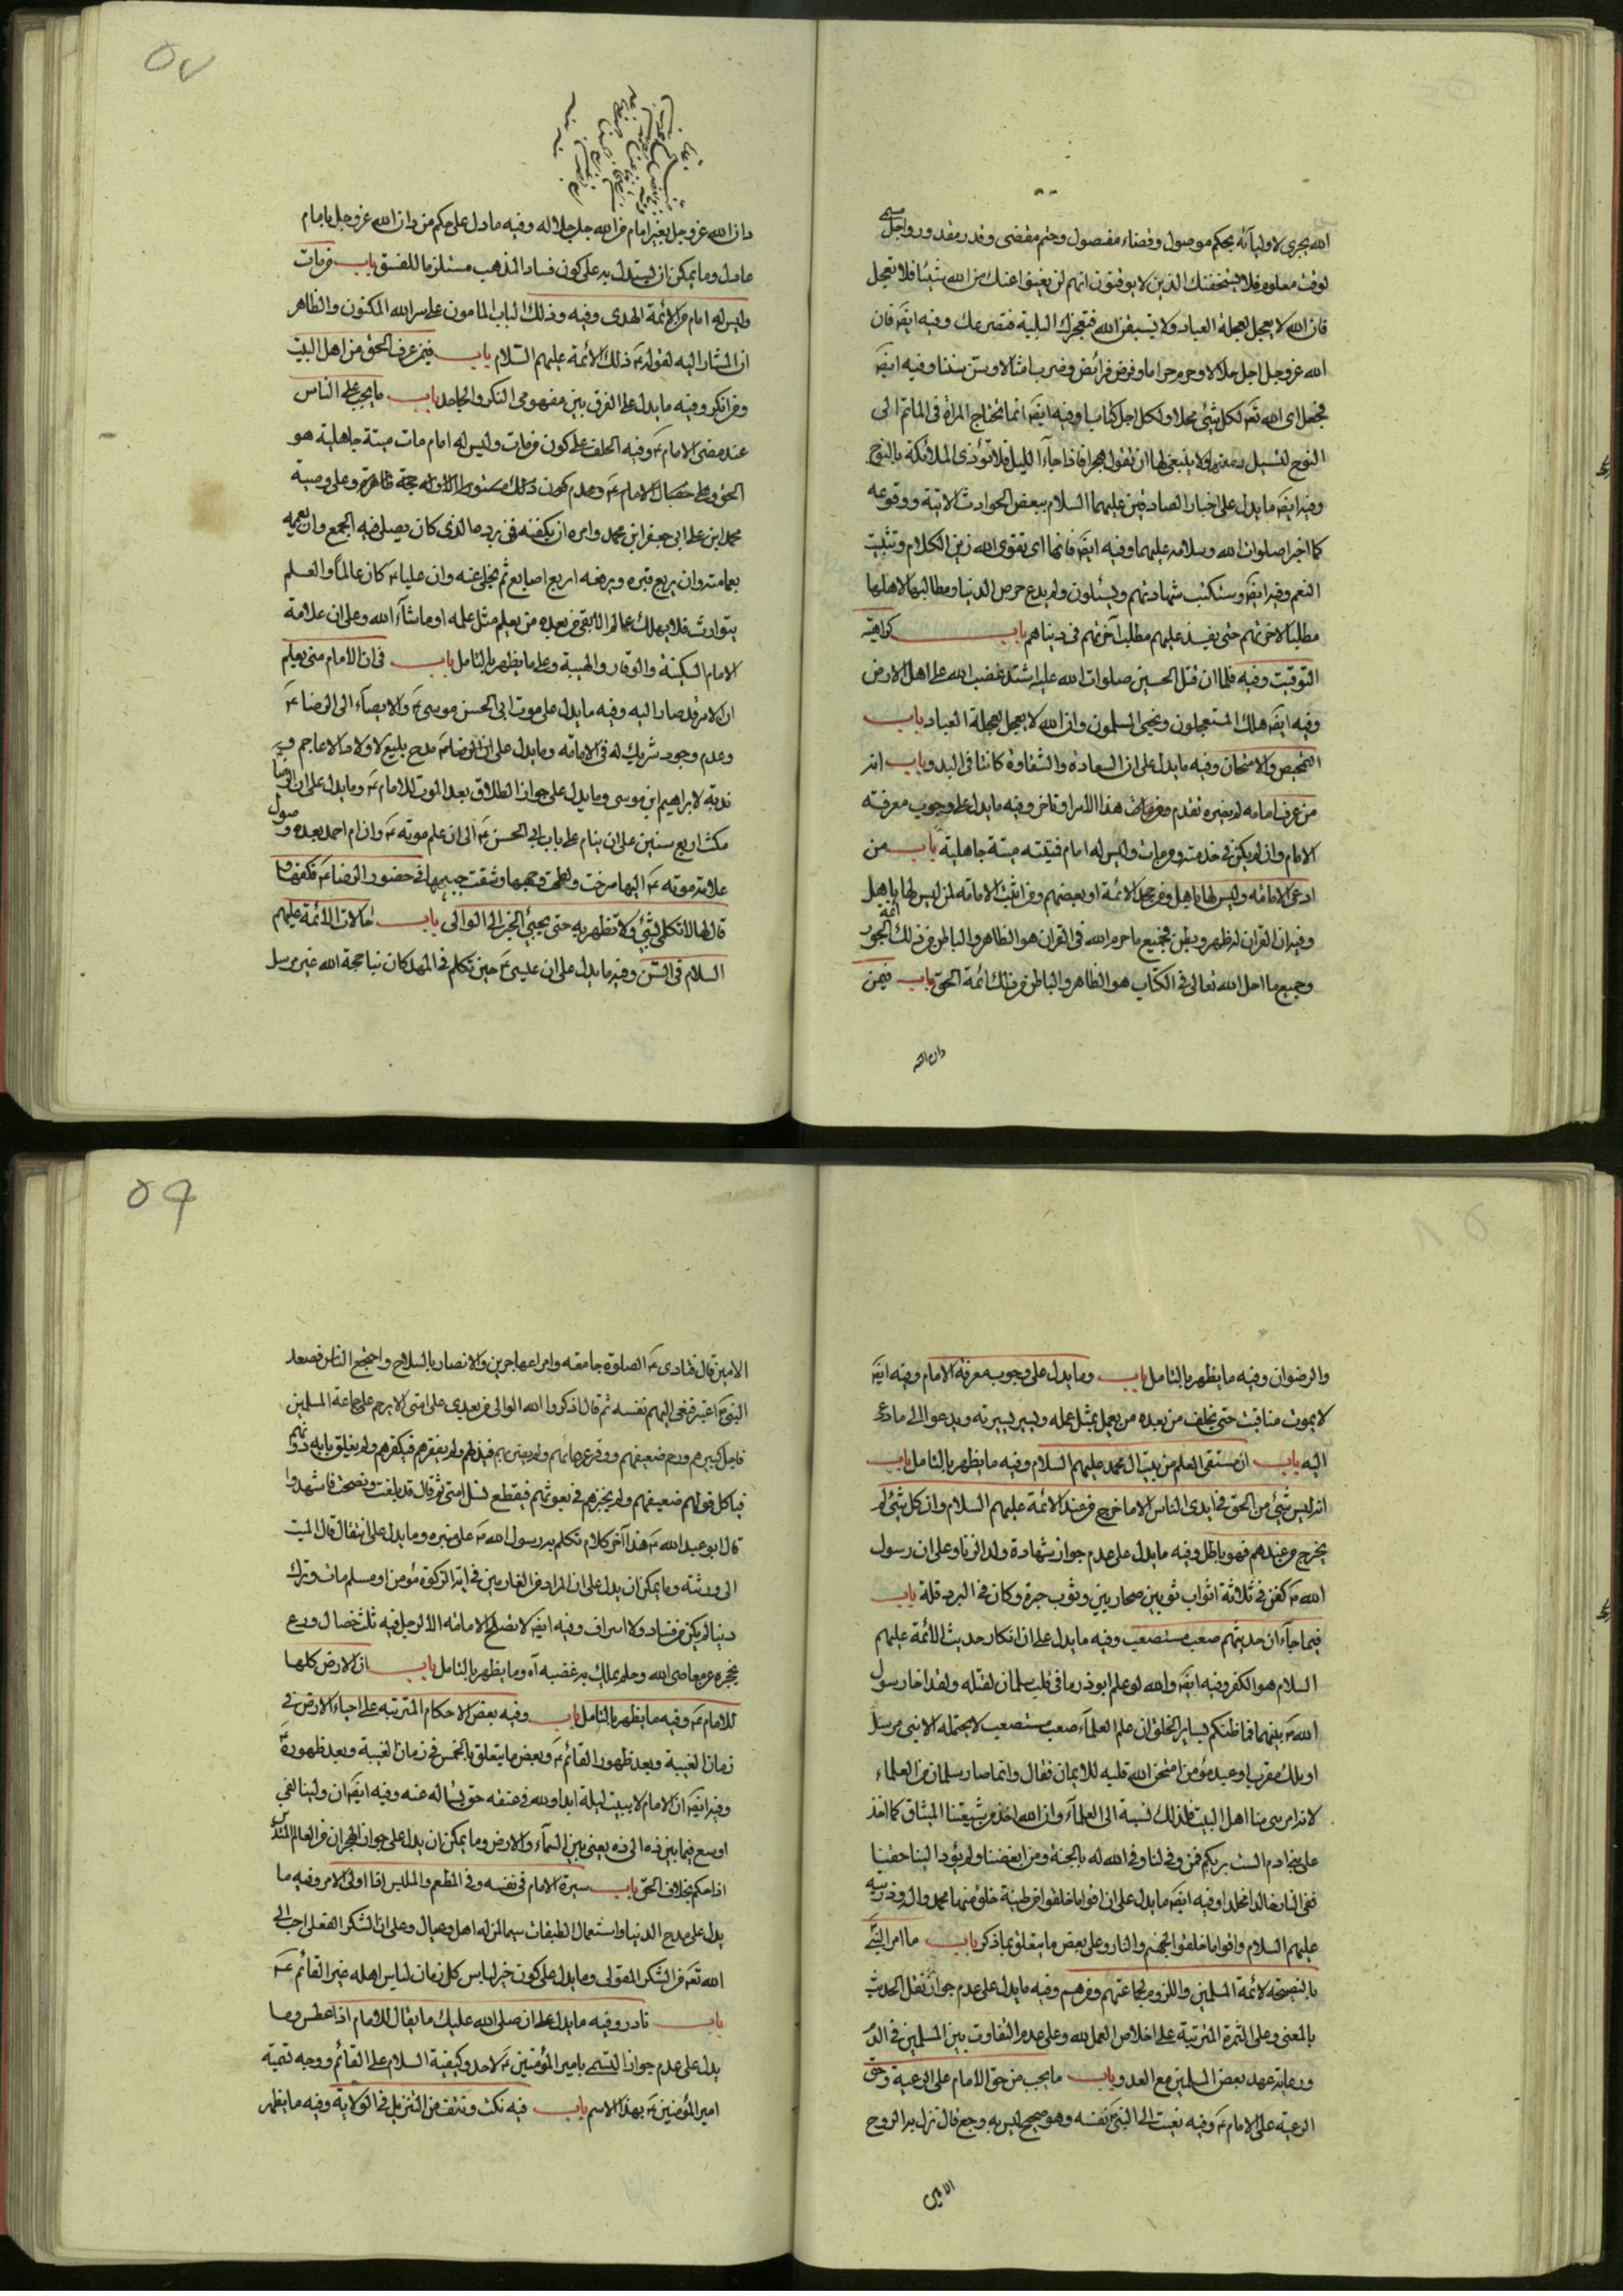 الله يجرى لاوليآئه بحكم موصول وقضاء مفصول وحتم مقضى وقدر مقدور واجل مسمى
لوقت معلوم فلا يستخفنك الذين لا يوقنون انهم لن يغنوا عنك من الله شيئا فلا تعجل
فان الله لا يعجل لعجلة العباد ولا تسبقن الله فتعجزك البلية فتصرعك وفيه ايضَ فان
الله عز وجل اجل حلالا وحرم حراما وفرض فرائض وضرب امثالا وسن سننا وفيه ايضَ
فجعل اى الله تعَ لكل شئ محلا ولكل اجل كتابا وفيه ايضَ انما تحتاج المراة فى الماتم الى
النوح لتسيل دمعتها ولا ينبغى لها ان تقول هجرا فاذا جآء الليل فلا تؤذى الملائكة بالنوح
وفيه ايضَ ما يدل على اخبار الصادقين عليهما السلام ببعض الحوادث الاتية ووقوعه
كما اخبرا صلوات الله وسلامه عليهما وفيه ايضَ فانها اى تقوى الله زين الكلام وتثبيت
النعم وفيه ايضَ وستكتب شهادتهم ويسئلون ولم يدع حرص الدنيا ومطالبها لاهلها
مطلبا لاخرتهم حتى يفسد عليهم مطلب آخرتهم فى دنياهم باب كراهية
التوقيت وفيه فلما ان قتل الحسين صلوات الله عليه اشتد غضب الله على اهل الارض
وفيه ايضَ هلك المستعجلون ونجى المسلمون وان الله لا يعجل لعجلة العباد باب
التمحيص والامتحان وفيه ما يدل على ان السعادة والشقاوة كانتا فى البدو باب انه
من عرف امامه لم يضره تقدم هذا الامر او تاخر وفيه ما يدل على وجوب معرفته
الامام وان لم يكن فى خدمته ومن مات وليس له امام فميتته ميتة جاهلية باب من
ادعى الامامة وليس لها باهل ومن جحد الائمة او بعضهم ومن اثبت الامامة لمن ليس لها باهل
وفيه ان القران له ظهر وبطن فجميع ما حرم الله فى القران هو الظاهر والباطن من ذلك ائمة الجور
وجميع ما احل الله تعالى فى الكتاب هو الظاهر والباطن من ذلك ائمة الحق باب فيمن
دان الله
٥٧
دان الله عز وجل بغير امام من الله جل جلاله وفيه ما دل على حكم من دان الله عز وجل بامام
عادل وما يمكن ان يستدل به على كون فساد المذهب مستلزما للفسق باب من مات
وليس له امام من ائمة الهدى وفيه وذلك الباب المامون على سر الله المكنون والظاهر
ان المشار اليه لقوله عَ ذلك الائمة عليهم السلام باب فيمن عرف الحق من اهل البيت
ومن انكر وفيه ما يدل على الفرق بين مفهومى المنكر والجاحد باب ما يجب على الناس
عند مضى الامام عَ وفيه الحلف على كون من مات وليس له امام مات ميتة جاهلية هو
محمد ابن على ابى جعفر ابن محمد وامره ان يكفنه فى برده الذى كان يصلى فيه الجمع وان يعممه
بعمامته وان يربع قبره ويرفعه اربع اصابع ثم يخلى عنه وان عليا عَ كان عالما والعلم
يتوارث فلا يهلك عالم الا بقى من بعده من يعلم مثل علمه او ما شآء الله وعلى ان علامة
الامام السكينة والوقار والهيبة وعلى ما يظهر بالتامل باب فى ان الامام متى يعلم
ان الامر قد صار اليه وفيه ما يدل على موت ابى الحسن موسى عَ والايصآء الى الرضا عَ
وعدم وجود شريك له فى الامامة وما يدل على ان الرضا عَ مدح بليغ لاولاد الاعاجم
لابراهيم ابن موسى وما يدل على جواز الطلاق بعد الموت للامام عَ وما يدل على ان الرضا
مكث اربع سنين على ان ينام على باب ابى الحسن عَ الى ان علم موته عَ وان ام احمد بعد وصول
علامة موته عَ اليها صرخت ولطمت وجهها وشقت جيبها فى حضور الرضا عَ فكفها و
قال لها لا تكلمى بشئ ولا تظهريه حتى يجيئ الخبر الى الوالى باب حالات الائمة عليهم
السلام فى السن وفيه ما يدل على ان عيسى عَ حين تكلم فى المهد كان نبيا حجة الله غير مرسل
والرضوان وفيه ما يظهر بالتامل باب وما يدل على وجوب معرفة الامام وفيه ايضَ
لا يموت منا ميت حتى يخلف من بعده من يعمل بمثل عمله ويسير بسيرته ويدعوا الى ما دعى
اليه باب ان مستقى العلم من بيت ال محمد عليهم السلام وفيه ما يظهر بالتامل باب
انه ليس شئ من الحق فى ايدى الناس الا ما خرج من عند الائمة عليهم السلام وان كل شئ لم
يخرج من عندهم فهو باطل وفيه ما يدل على عدم جواز شهادة ولد الزنا وعلى ان رسول
الله صَ كفن فى ثلاثة اثواب ثوبين صحاريين وثوب حبرة وكان فى البرد قلة باب
فيما جآء ان حديثهم صعب مستصعب وفيه ما يدل على ان انكار حديث الائمة عليهم
السلام هو الكفر وفيه ايضَ والله لو علم ابوذر ما فى قلب سلمان لقتله ولقد اخا رسول
الله صَ بينهما فما ظنكم بساير الخلق ان علم العلمآء صعب مستصعب لا يحتمله الا نبى مرسل
او ملك مقرب او عبد مؤمن امتحن الله قلبه للايمان فقال وانما صار سلمان من العلماء
لانه امرء منا اهل البيت فلذلك نسبة الى العلمآء وان الله اخذ من شيعتنا الميثاق كما اخذ
على بنى ادم الست بربكم فمن وفى لنا وفى الله له بالجنة ومن ابغضنا ولم يؤد الينا حقنا
ففى النار خالدا مخلدا وفيه ايضَ ما يدل على ان اقواما خلقوا من طينة خلق منها محمد واله وذريته
عليهم السلام واقواما خلقوا لجهنم والنار وعلى بعض ما يتعلق بما ذكر باب ما امر النبى
بالنصيحة لائمة المسلمين واللزوم لجماعتهم ومن هم وفيه ما يدل على عدم جواز نقل الحديث
بالمعنى وعلى الثمرة المترتبة على اخلاص العمل لله وعلى عدم التفاوت بين المسلمين فى الدم
ورعاية عهد بعض المسلمين مع العدو باب ما يجب من حق الامام على الرعية وحق
الرعية على الامام عَ وفيه نعيت الى النبى صَ نفسه وهو صحيح ليس به وجع قال نزل به الروح
الامين
٥٩
الامين قال فنادى عَ الصلوة جامعة وامر المهاجرين والانصار بالسلاح واجتمع الناس فصعد
النبى صَ المنبر فنعى اليهم نفسه ثم قال اذكروا الله الوالى من بعدى على امتى الا يرحم على جماعة المسلمين
فاجل كبيرهم ورحم ضعيفهم ووقر عالمهم ولم يضربهم فيذلهم ولم يفقرهم فيكفرهم ولم يغلق بابه دونهم
فياكل قويهم ضعيفهم ولم يخبزهم فى بعوثهم فيقطع نسل امتى ثم قال قد بلغت ونصحت فاشهدوا
قال ابو عبد الله عَ هذا آخر كلام تكلم به رسول الله صَ على منبره وما يدل على انتقال مال الميت
الى ورثته وما يمكن ان يدل على ان المراد من الغارمين فى اية الزكوة مؤمن او مسلم مات وترك
دينا لم يكن من فساد ولا اسراف وفيه ايضَ لا تصلح الامامة الا لرجل فيه ثلث خصال ورع
يحجزه عن معاصى الله وحلم يملك به غضبه آه وما يظهر بالتامل باب ان الارض كلها
للامام عَ وفيه ما يظهر بالتامل باب وفيه بعض الاحكام المترتبة على احياء الارض فى
زمان الغيبة وبعد ظهور القائم عَ وبعض ما يتعلق بالخمس فى زمان الغيبة وبعد ظهوره عَ
وفيه ايضَ ان الامام لا يبيت ليلة ابدا ولله فى عنقه حق يساله عنه وفيه ايضَ ان ولينا لفى
اوسع فيما بين ذه الى ذه يعنى بين السمآء والارض وما يمكن ان يدل على جواز الهجران من العالم
اذا حكم بخلاف الحق باب سيرة الامام فى نفسه وفى المطعم والملبس اذا ولى الامر وفيه ما
يدل على مدح الدنيا واستعمال الطيبات سيما لمن له اهل وعيال وعلى ان الشكر الفعلى احب الى
الله تعَ من الشكر القولى وما يدل على كون خير لباس كل زمان لباس اهله غير القائم عَ
باب نادر وفيه ما يدل على ان صلى الله عليك ما يقال للامام اذا عطس وما
يدل على عدم جواز التسمى بامير المؤمنين عَ لاحد وكيفية السلام على القائم ووجه تسمية
امير المؤمنين عَ بهذا الاسم باب فيه نكت ونتف من التنزيل فى الولاية وفيه ما يظهر